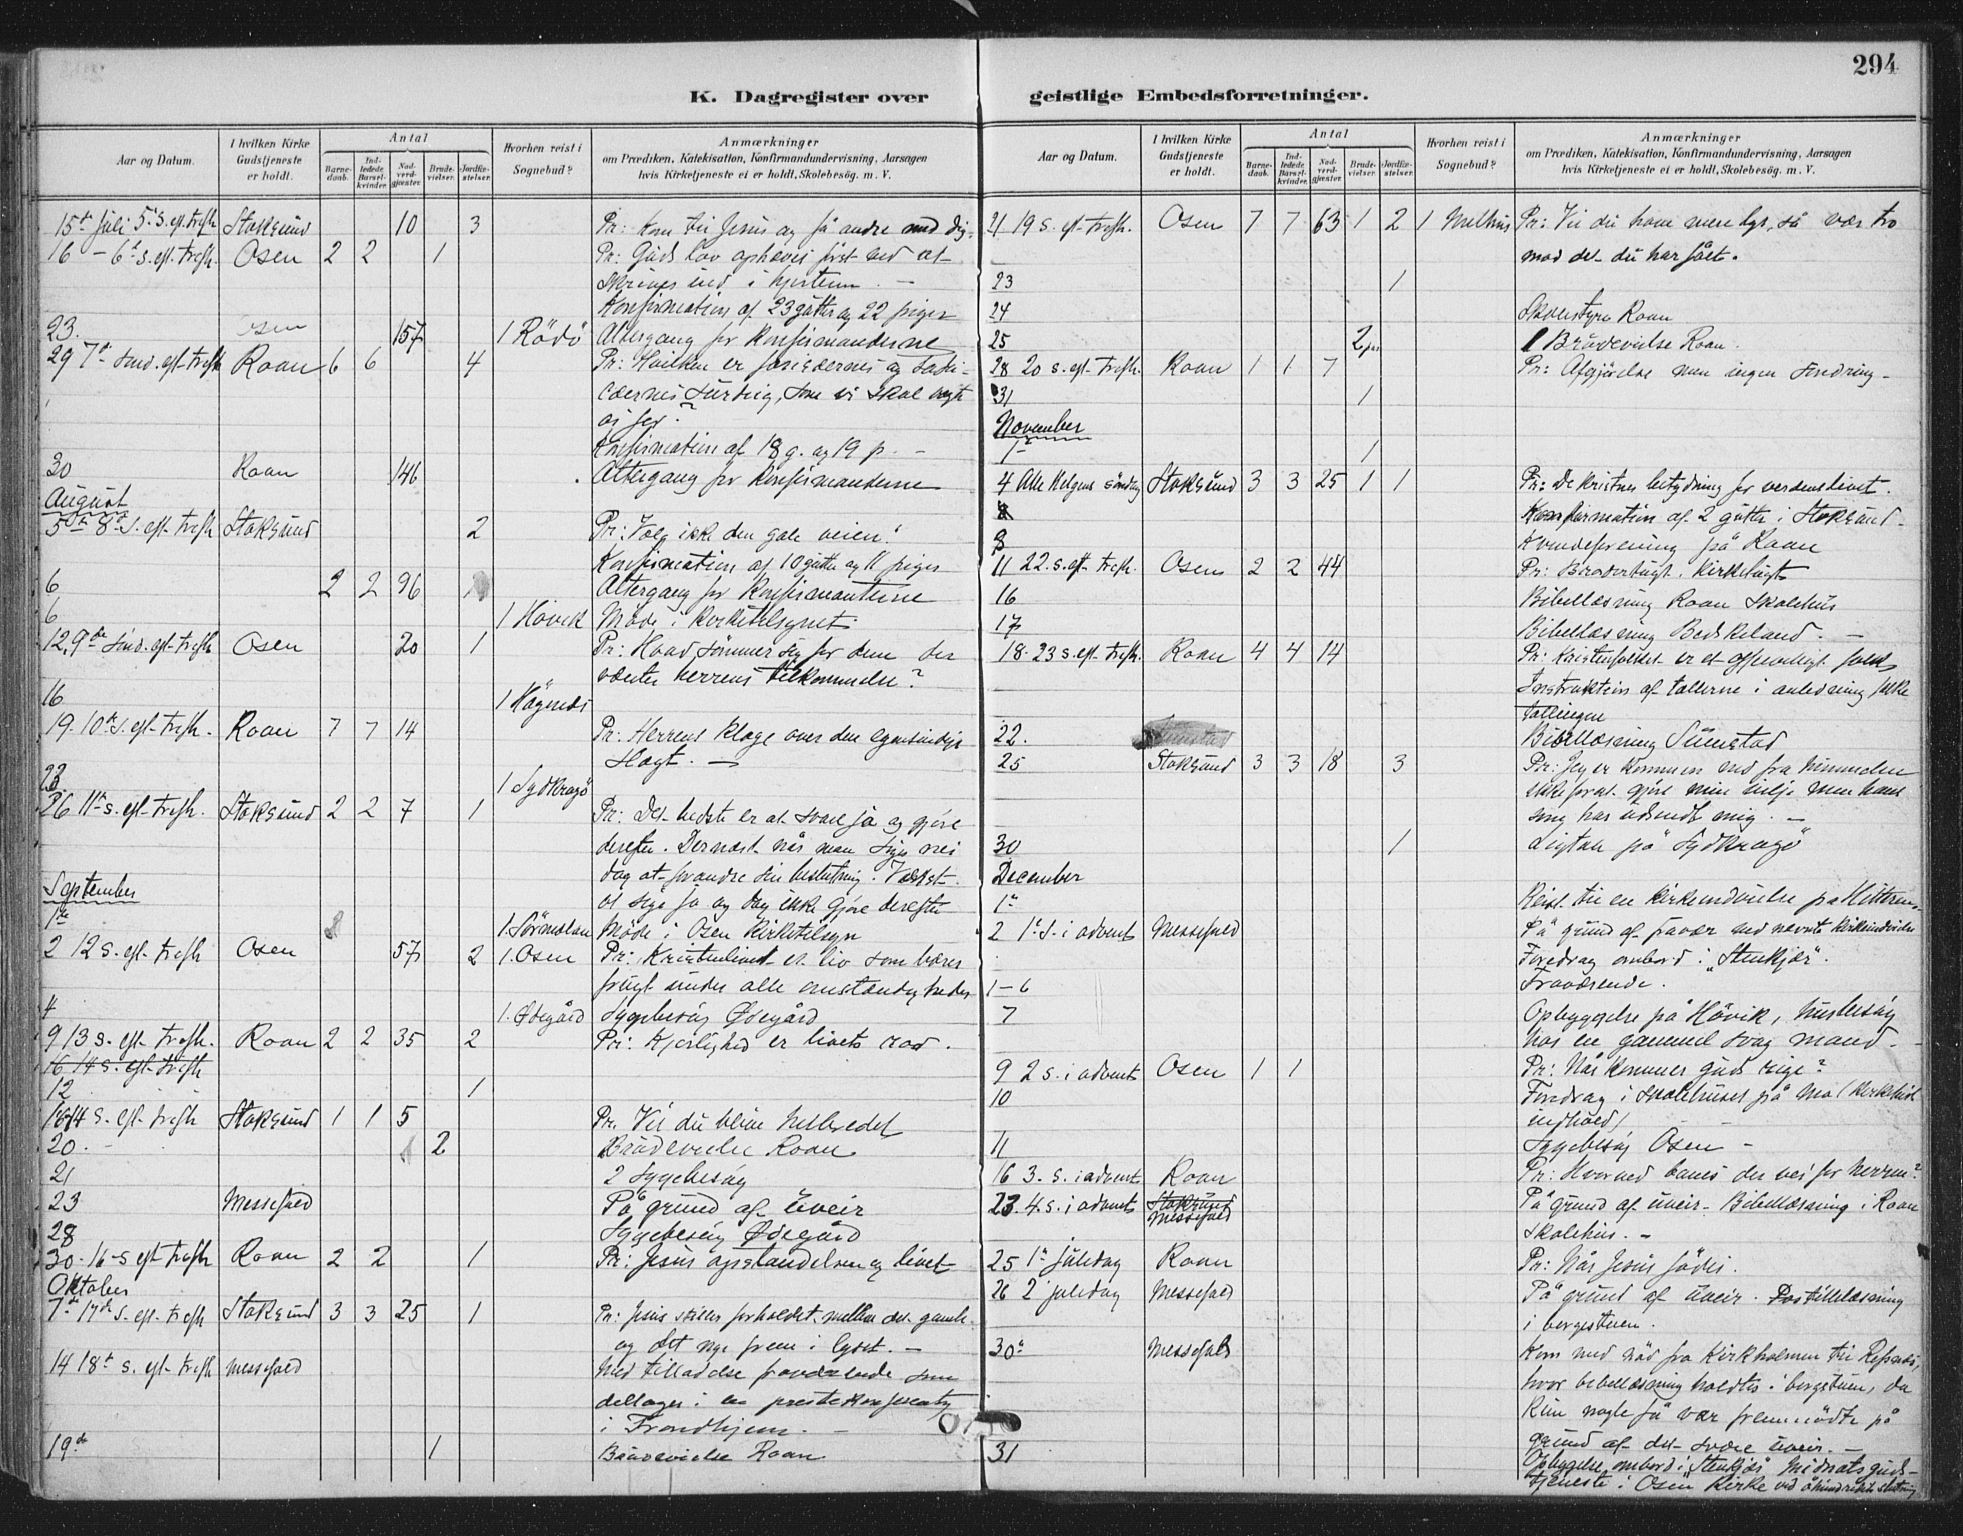 294
K. Dagregister over geistlige Embedsforretninger.
Aar og Datum.
I hvilken Kirke Gudstjeneste er holdt.
Antal
Barnedaab.
Indledede Barselkvinder.
Nadverdgjæster.
Brudevielser.
Jordfæstelser.
Hvorhen reist i Sognebud?
Anmærkninger
om Prædiken, Katekisation, Konfirmandundervisning, Aarsagen
hvis Kirketjeneste ei er holdt, Skolebesøg. m. V.
15de Juli 5 S. eft. trefh Stoksund 10 3 Pr: Kom til Jesus og få andre med dig.
16 - 6te s. eft. trefh. Osen 2 2 1 Pr: Guds lov ophæves først ved at
skrives ind i hjertene. -
Konfirmation af 23 gutter og 22 piger
23. Osen 157 1 Rödö Altergang for Konfirmanderne
29 7de Sønd. eft. trefh Roan 6 6 4 Pr: Hvilken er farisæernes og
surdeig, som vi skal vogte
os for?
Konfirmation af 18 g. og 19 p. -
30 Roan 146 Altergang for Konfirmanderne
August
5te 8de S. eft. trefh Stoksund 2 Pr: Vælg ikke den gale veien!
Konfirmation af 10 gutter og 11 piger
6 2 2 96 Altergang for Konfirmanterne
6 1 Hövik Møde i Kirketilsynet.
12. 9de sönd. eft. trefh Osen 20 1 Pr: Hvad sömmer sig for dem der
venter herrens tilkommelse?
16 1 Hågenæs
19. 10de s. eft. trefh. Roan 7 7 14 Pr: Herrens klage over den egensindige
Slægt. -
23. 1 Sydkragö
26 11te s. eft. trefh. Stoksund 2 2 7 1 Pr: Det bedste er at svare ja og gjöre
derefter. Dernæst når man siger nei
dog at forandre sin beslutning. Værst
at sige ja og dog ikke gjöre derefter
September
1te 1. Sörmelan Möde i Osen Kirketilsyn
2 12 s. eft. trefh Osen 57 2 1. Osen Pr: Kristenlivet et liv som bærer
frugt under alle omstændigheder
4 1. Ødegård Sygebesög Ødegård
9 13 s. eft. trefh. Roan 2 2 35 2 Pr: Kjerlighed er livets rod.
16 14 s. eft. trefh
12 1
16 14 s. eft. trefh Stoksund 1 1 5 Pr. Vil du blive helbredet
20. 2 Brudevielse Roan
21 2 Sygebesög
23 Messefald På grund af uveir
28 Sygebesög Ødegård
30 - 16 s eft trefh Roan 2 2 1 Pr: Jesus opstandelsen og livet
Oktober
7de 17de s. eft. trefh Stoksund 3 3 25 1 Pr: Jesus stiller forholdet mellem det gamle
og det nye frem i lyset. -
14 18de s. eft. trefh Messefald Med tilladelse fraværende som
deltager i en prestekonferents
i Trondhjem. -
19de 1 Brudevielse Roan
Aar og Datum.
I hvilken Kirke Gudstjeneste er holdt.
Antal
Barnedaab.
Indledede Barselkvinder.
Nadverdgjæster.
Brudevielser.
Jordfæstelser.
Hvorhen reist i Sognebud?
Anmærkninger
om Prædiken, Katekisation, Konfirmandundervisning, Aarsagen
hvis Kirketjeneste ei er holdt, Skolebesøg. m. V.
21 19 s. eft. trefh. Osen 7 7 63 1 2 1 Melhus Pr: Vil du have mere lys, så vær tro
mod det du har fået.
23 1
24 Skolestyre Roan
25 2 par Brudevielse Roan.
28 20 s. eft. trefh. Roan 1 1 7 Pr: Afgjörelse men ingen
31 1
November
1te 1
4 Alle Helgens söndag Stoksund 3 3 25 1 1 Pr: De kristnes betydning for verdenslivet.
Konfirmation af 2 gutter i Stoksund.
8 Kvindeforening på Roan
11 22. s. eft. trefh. Osen 2 2 44 Pr: Brodertugt. Kirketugt
16 Bibellæsning Roan Skolehus
17 Bibellæsning -
18. 23 s. eft. trefh. Roan 4 4 14 Pr: Kristenfolket er et offervilligt folk
Instruktion af tællerne i anledning folke
tællingen
22. Bibellæsning
25 Stoksund 3 3 18 3 Pr: Jeg er kommen ned fra himmelen
ikke for at gjöre min vilje men hans
som har udsendt mig. -
30 1 Ligtale på Sydkragö
December
1te Reist til en kirkeindvielse på Hitteren.
2 1te S. i advent Messefald På grund af fravær ved nævnte kirkeindvielse
Foredrag ombord i "Stenkjær".
1-6 Fraværende.
7 Opbyggelse på Hövik, husbesög
hos en gammel svag mand.
9 2 s. i advent Osen 1 1 Pr: Når kommer Guds rige?
10 Foredrag i skolehuset på Mo (kirkeligt
indhold)
11 Sygebesög Osen -
16 3. S. i advent Roan Pr: Hvorved banes der vei for herren?
23. 4. s. i advent Stoksund Messefald På grund af uveir - Bibellæsning i Roan
Skolehus. -
25 1te juledag Roan Pr: Når Jesus födes.
26 2 juledag Messefald På grund af uveir. Postillelæsning
i borgestuen.
30te Messefald Kom med nöd fra Kirkholmen til Refsnes,
hvor bibellæsning holdtes i borgstuen, da
kun nogle få var fremmödte på
grund af det svære uveir. -
31 Opbyggelse ombord i "Stenkjær" Midnatsguds-
tjeneste i Osen Kirke ved århundredets slutning